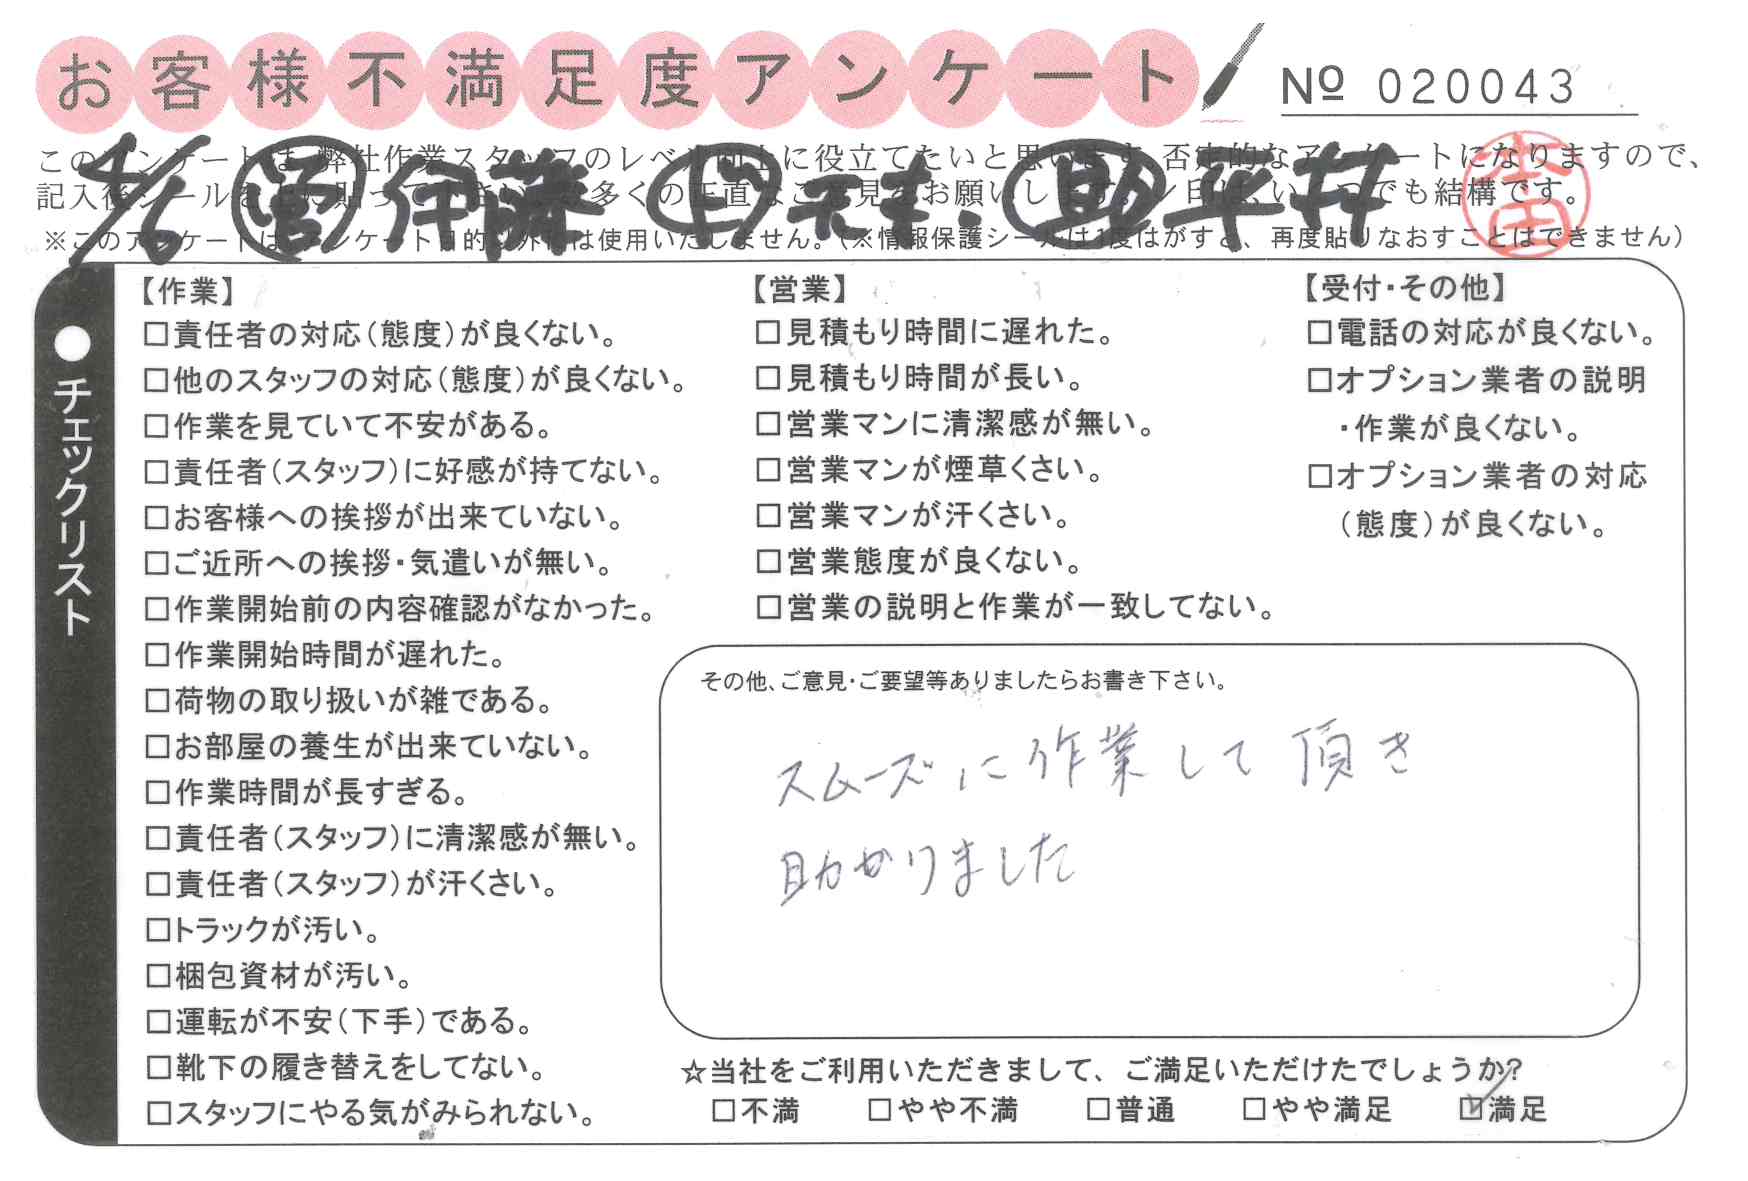 お客様不満足度アンケート
№ 020043
このアンケートは、弊社作業スタッフのレベル向上に役立てたいと思います。否定的なアンケートになりますので、
記入後シールを上に貼って下さい。数多くの正直なご意見をお願いします。レ印は、いくつでも結構です。
※このアンケートは、アンケート目的以外には使用いたしません。(※情報保護シールは1度はがすと、再度貼りなおすことはできません)
4/6 営 伊藤 助 平井
本田
●チェックリスト
【作業】
□責任者の対応(態度)が良くない。
□他のスタッフの対応(態度)が良くない。
□作業を見ていて不安がある。
□責任者(スタッフ)に好感が持てない。
□お客様への挨拶が出来ていない。
□ご近所への挨拶・気遣いが無い。
□作業開始前の内容確認がなかった。
□作業開始時間が遅れた。
□荷物の取り扱いが雑である。
□お部屋の養生が出来ていない。
□作業時間が長すぎる。
□責任者(スタッフ)に清潔感が無い。
□責任者(スタッフ)が汗くさい。
□トラックが汚い。
□梱包資材が汚い。
□運転が不安(下手)である。
□靴下の履き替えをしてない。
□スタッフにやる気がみられない。
【営業】
□見積もり時間に遅れた。
□見積もり時間が長い。
□営業マンに清潔感が無い。
□営業マンが煙草くさい。
□営業マンが汗くさい。
□営業態度が良くない。
□営業の説明と作業が一致してない。
【受付・その他】
□電話の対応が良くない。
□オプション業者の説明
・作業が良くない。
□オプション業者の対応
(態度)が良くない。
その他、ご意見・ご要望等ありましたらお書き下さい。
スムーズに作業して頂き
助かりました
☆当社をご利用いただきまして、ご満足いただけたでしょうか?
□不満 □やや不満 □普通 □やや満足 ☑満足